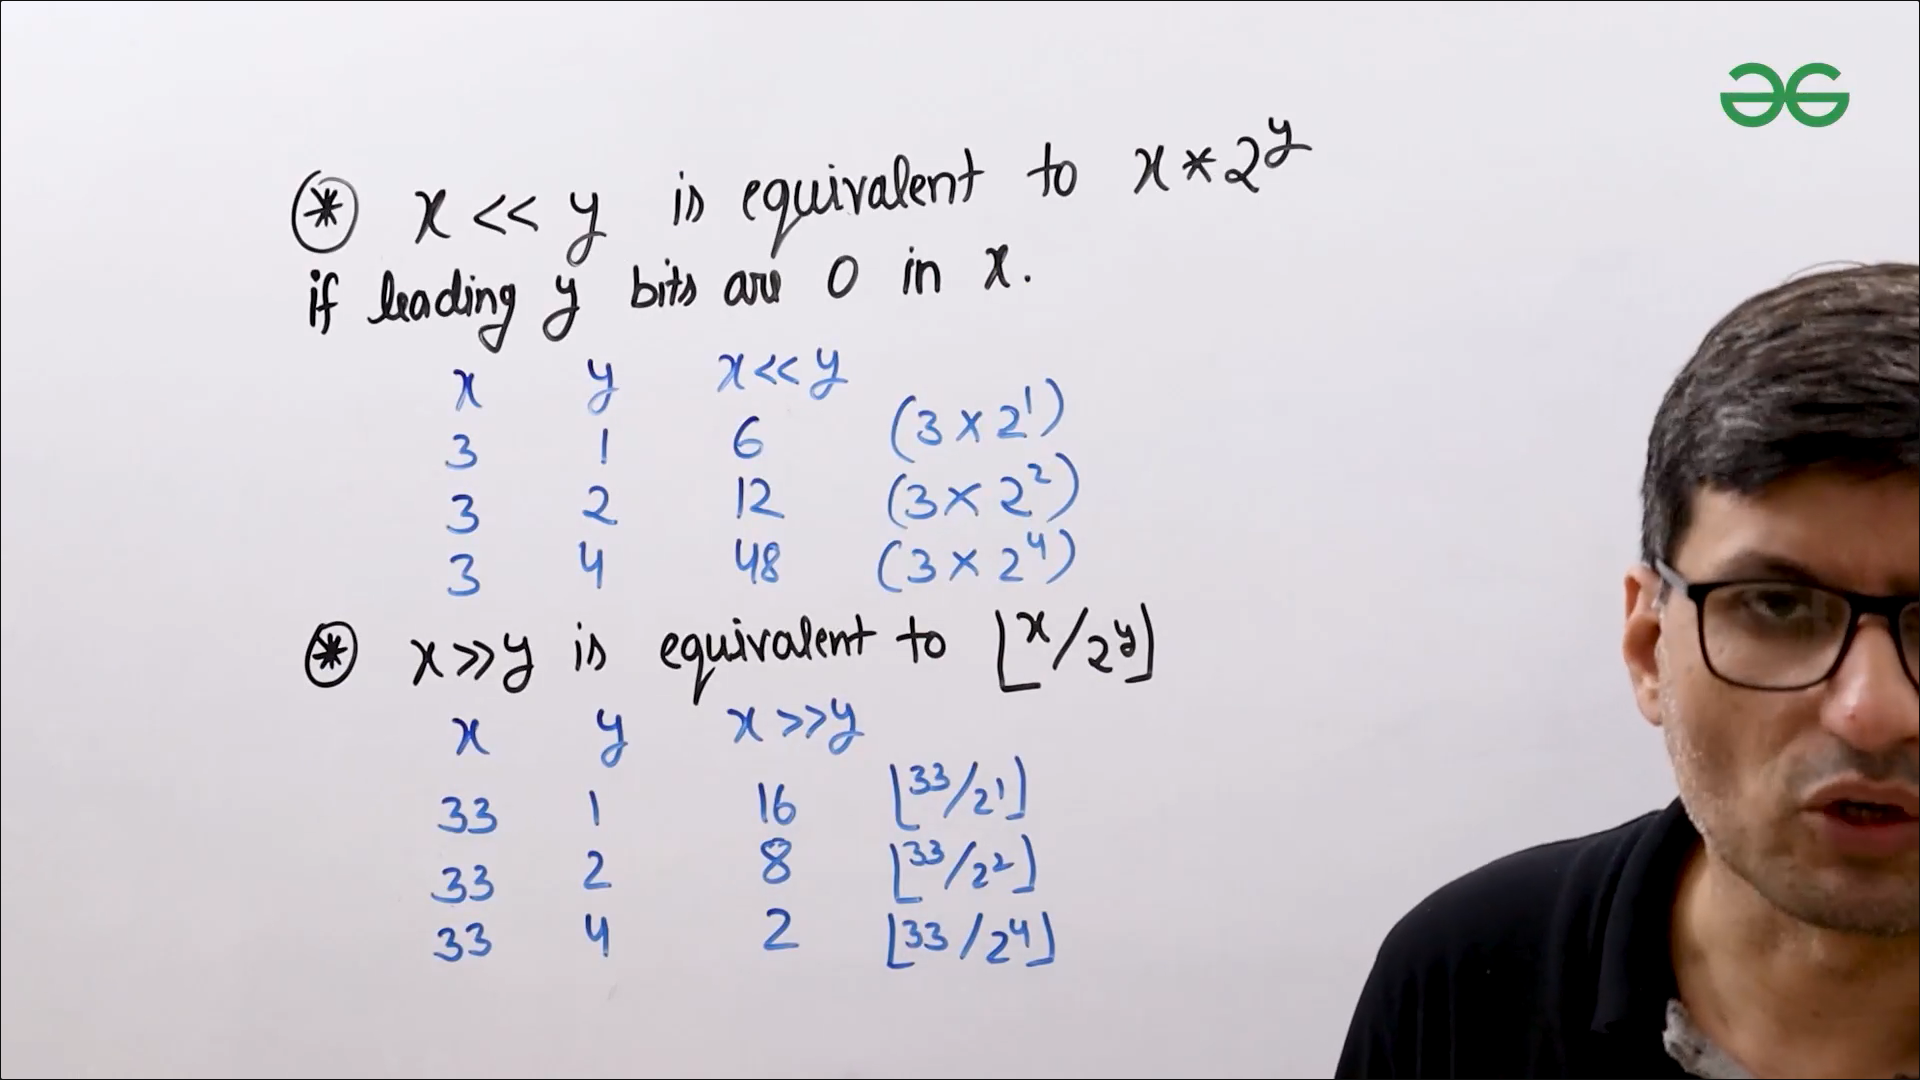 ⊛ x << y is equivalent to x * 2^y
if leading y bits are 0 in x.
x y x<<y
3 1 6 (3 × 2^1)
3 2 12 (3 × 2^2)
3 4 48 (3 × 2^4)
⊛ x >> y is equivalent to ⌊x/2^y⌋
x y x >> y
33 1 16 ⌊33/2^1⌋
33 2 8 ⌊33/2^2⌋
33 4 2 ⌊33/2^4⌋